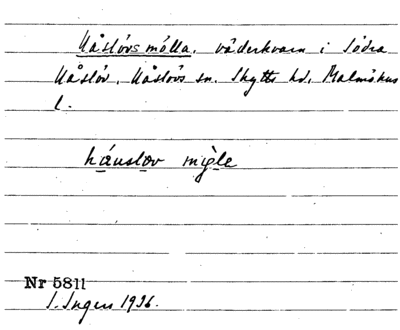 Håslövs mölla, väderkvarn i Södra
Håslöv, Håslövs sn. Skytts hd, Malmöhus
l.
Nr 5811
I. Ingers 1936.